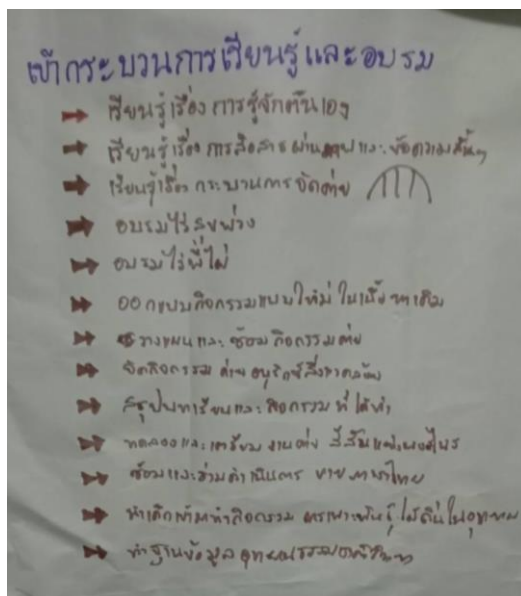 เข้ากระบวนการเรียนรู้และอบรม
เรียนรู้เรื่อง การรู้จักตัวเอง
เรียนรู้เรื่อง การสื่อสาร ผ่านภาพและข้อความสั้นๆ
เรียนรู้เรื่อง กระบวนการ จัดค่าย
อบรมไร่สุขพ่วง
อบรมไร่พี่ไผ่
ออกแบบกิจกรรมแบบใหม่ ในเนื้อหาเดิม
วางแผนและซ้อมกิจกรรมค่าย
จัดกิจกรรม ค่ายอนุรักษ์สิ่งแวดล้อม
สรุปบทเรียนและกิจกรรม ที่ได้ทำ
ทดลองและเตรียม งานค่าย สีสันแห่งพงไพร
ซ้อมและร่วมดำเนินการ ค่ายภาษาไทย
นำเด็กเข้ามาทำกิจกรรม เพาะพันธุ์ไม้ถิ่นในอุทยาน
ทำฐานข้อมูลอุทยานธรรมชาติวิทยา